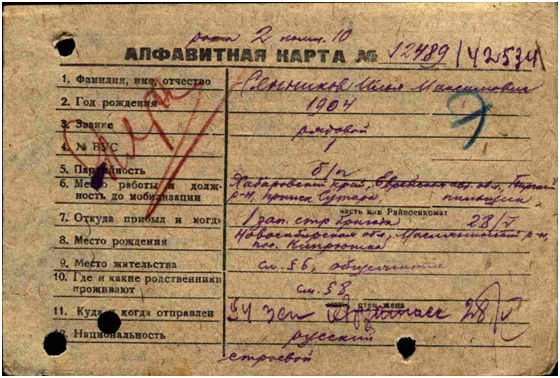 рота 2 помещ. 10
АЛФАВИТНАЯ КАРТА № 12489/42534
1. Фамилия, имя, отчество Сенников Илья Максимович
2. Год рождения 1904
3. Звание рядовой
4. № ВУС 1
5. Партийность б/п
6. Место работы и долж- Хабаровский край, Еврейская авт. обл.,
ность до мобилизации р-н, прииск Сутара
часть или Райвоенкомат
7. Откуда прибыл и когда 1 зап. стр бригада 28/V
8. Место рождения Новосибирская обл., Маслянинский р-н,
пос.
9. Место жительства см. § 6, общежитие
10. Где и какие родственники
проживают см. § 8
отец жена
11. Куда и когда отправлен 94 зсп 28/V
12. Национальность русский
строевой